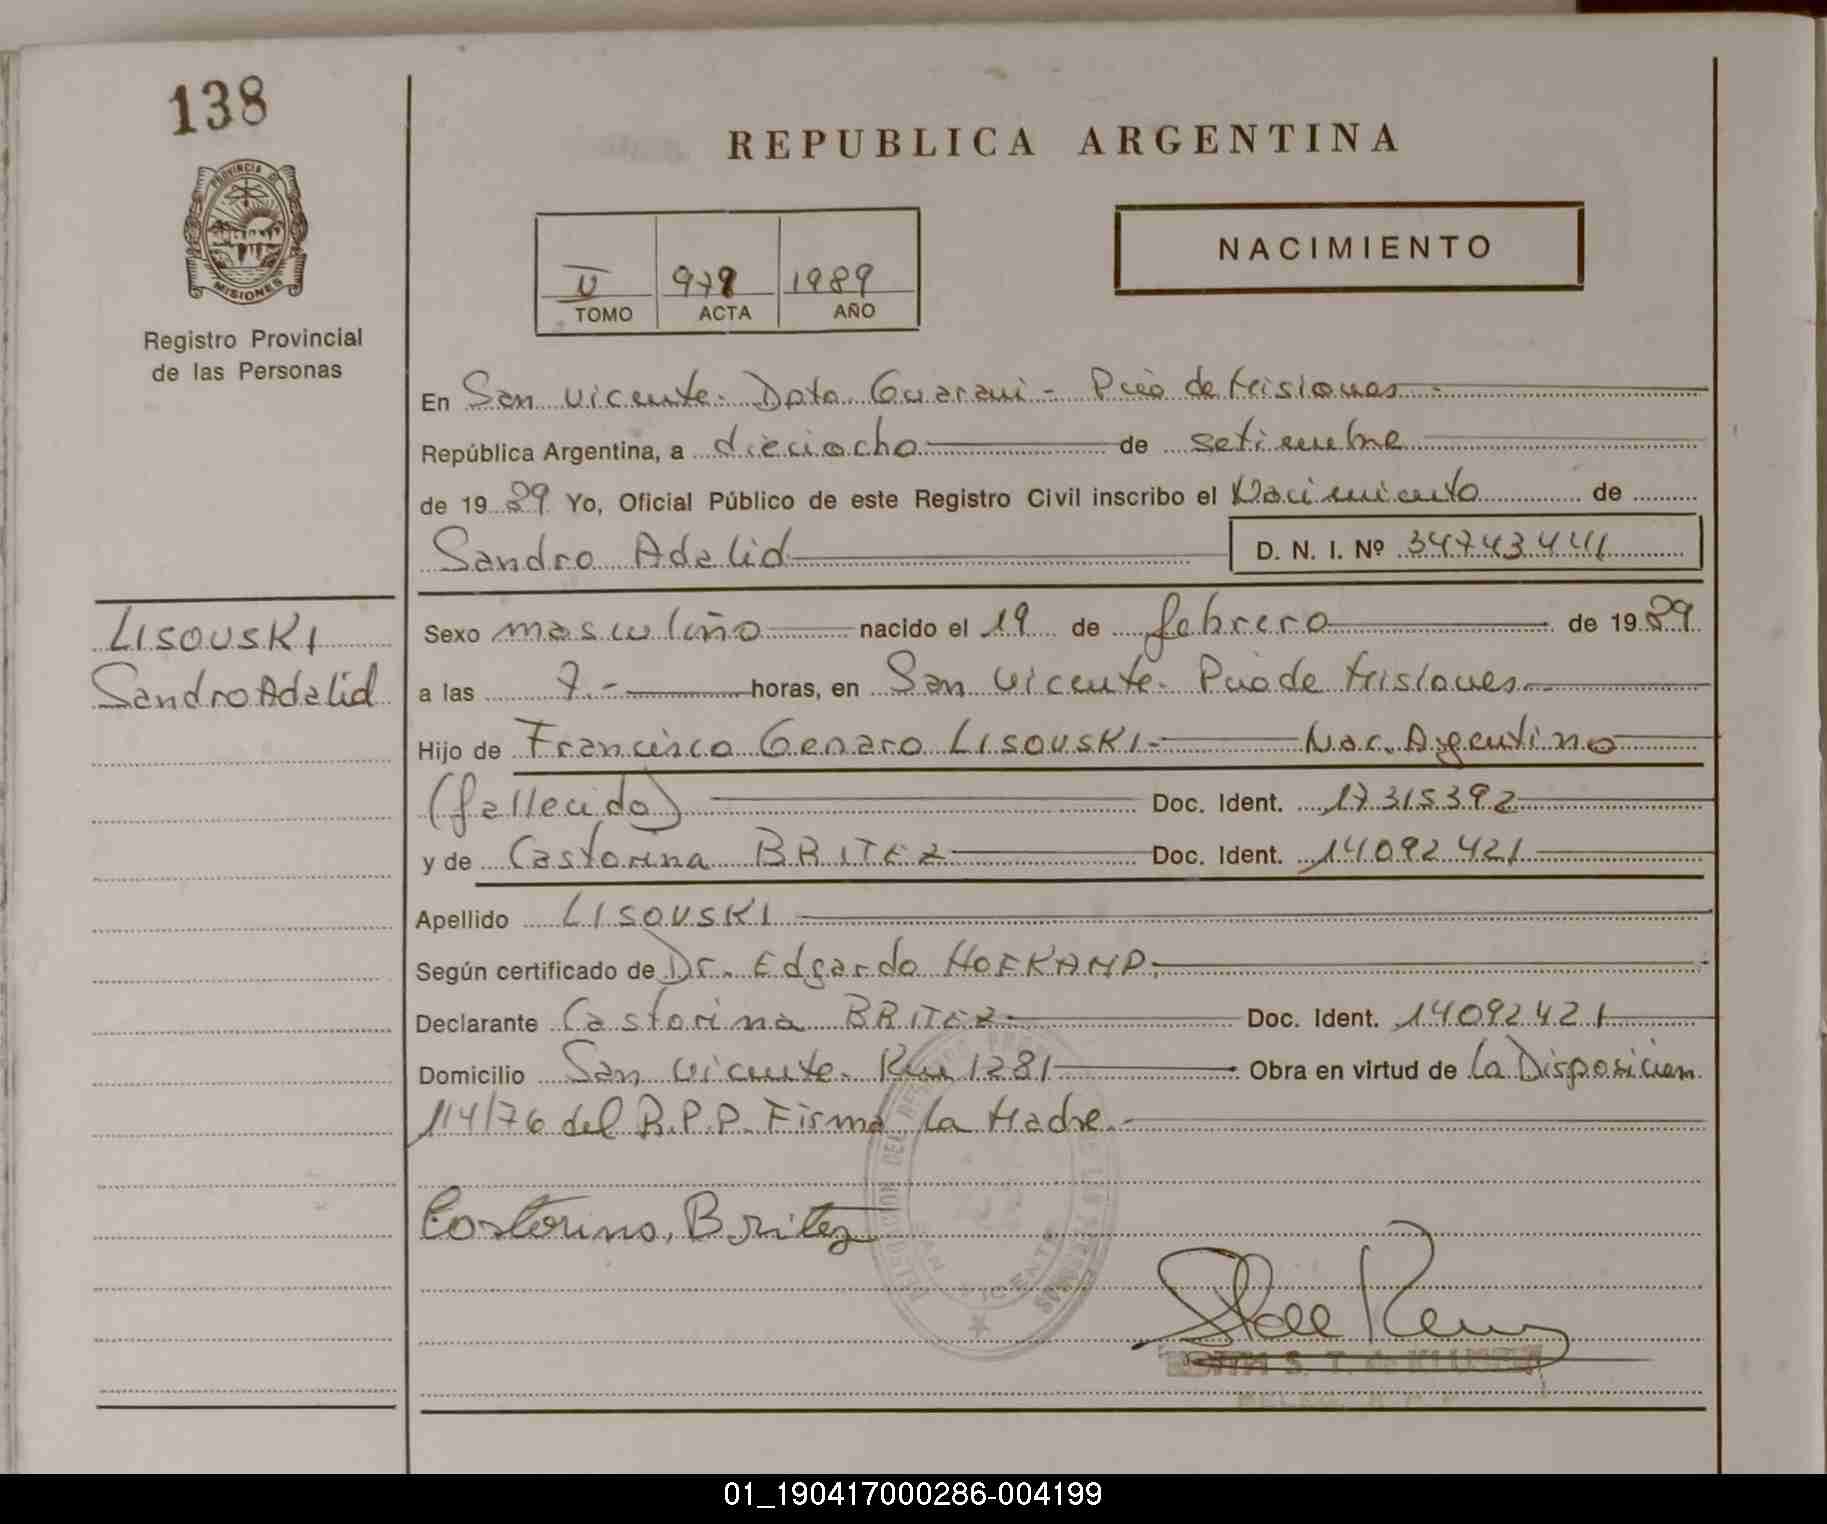 138
PROVINCIA DE
MISIONES
Registro Provincial
de las Personas
REPUBLICA ARGENTINA
NACIMIENTO
II 979 1989
TOMO ACTA AÑO
En San Vicente. Dpto. Guarani - Pcia de Misiones
República Argentina, a dieciocho de setiembre
de 1989 Yo, Oficial Público de este Registro Civil inscribo el Nacimiento de
Sandro Adalid D. N. I. Nº 34743441
LISOUSKI
Sandro Adalid
Sexo masculino nacido el 19 de febrero de 1989
a las 7.- horas, en San Vicente. Pcia de Misiones
Hijo de Francisco Genaro LISOUSKI - Nac. Argentino
(fallecido) Doc. Ident. 17315392
y de Castorina BRITEZ Doc. Ident. 14092421
Apellido LISOUSKI
Según certificado de Dr. Edgardo HOFKAMP.
Declarante Castorina BRITEZ Doc. Ident. 14092421
Domicilio San Vicente. Km 1281 Obra en virtud de la Disposicion
114/76 del R.P.P. Firma la Madre.
Castorina, Britez
SAN VICENTE
S. T. de
01_190417000286-004199